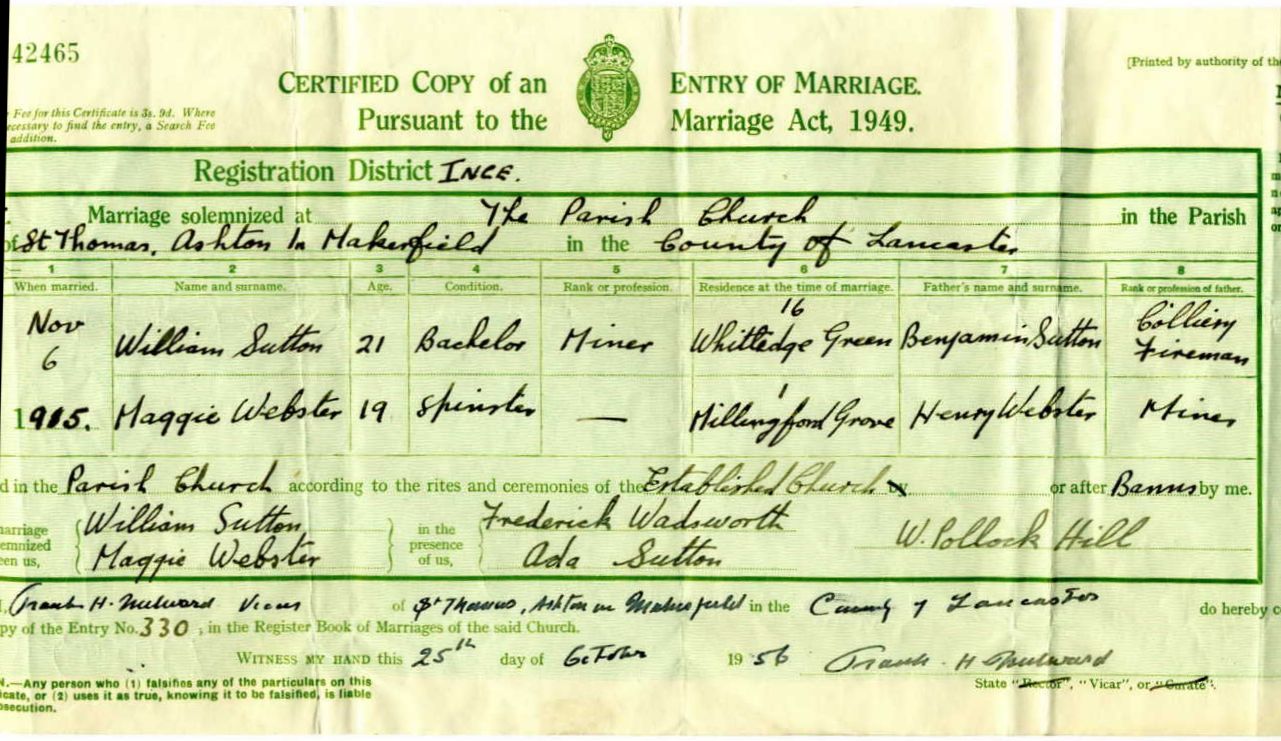 42465
CERTIFIED COPY of an ENTRY OF MARRIAGE.
[Printed by authority of the
Fee for this Certificate is 3s. 9d. Where
necessary to find the entry, a Search Fee
addition.
Pursuant to the Marriage Act, 1949.
Registration District INCE.
Marriage solemnized at The Parish Church in the Parish
of St Thomas, Ashton In Makerfield in the County of Lancaster
1 2 3 4 5 6 7 8
When married. Name and surname. Age. Condition. Rank or profession. Residence at the time of marriage. Father's name and surname. Rank or profession of father.
Nov 6 William Sutton 21 Bachelor Miner 16 Whitledge Green Benjamin Sutton Colliery Fireman
1915. Maggie Webster 19 Spinster — 1 Millingford Grove Henry Webster Miner
d in the Parish Church according to the rites and ceremonies of the Established Church by or after Banns by me.
William Sutton in the Frederick Wadsworth
Maggie Webster presence of us, Ada Sutton W. Pollock Hill
I, Frank H. Vicar of St Thomas, Ashton in Makerfield in the County of Lancaster do hereby c
py of the Entry No. 330, in the Register Book of Marriages of the said Church.
WITNESS MY HAND this 25th day of October 1956 Frank H
N.—Any person who (1) falsifies any of the particulars on this
icate, or (2) uses it as true, knowing it to be falsified, is liable
osecution.
State "Rector", "Vicar", or "Curate".